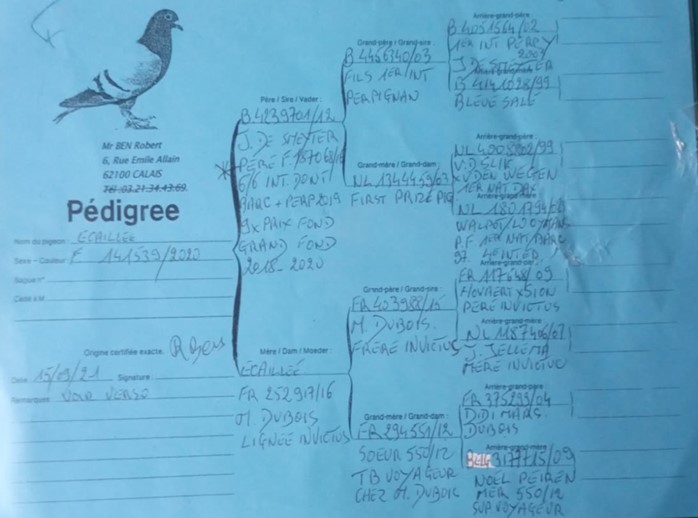 Mr BEN Robert
6, Rue Emile Allain
62100 CALAIS
Tél :03.21.34.43.69.
Pédigree
Nom du pigeon : ECAILLÉE
Sexe - Couleur F 141539/2020
Bague n°
Cédé à M.
Origine certifiée exacte. RBen
Date 15/09/21 Signature :
Remarques VOIR VERSO
Père / Sire / Vader :
B.4239701/12
J. DE SMEYTER
PÈRE F 187068/16
6/6 INT. DONT
BARC + PERP 2019
9x PRIX FOND
GRAND FOND
2018-2020
Mère / Dam / Moeder :
ECAILLÉE
FR 252917/16
M DUBOIS
LIGNÉE INVICTUS
Grand-père / Grand-sire :
B 4456340/03
FILS 1ER INT
PERPIGNAN
Grand-mère / Grand-dam :
NL 1344459/03
FIRST PRIZE PIG
Grand-père / Grand-sire :
FR 403988/15
M. DUBOIS.
FRÈRE INVICTUS
Grand-mère / Grand-dam :
FR 294551/12
SOEUR 550/12
TB VOYAGEUR
CHEZ M. DUBOIS
Arrière-grand-père :
B 4051564/02
1ER INT PERPY
2009
J. DE SMEYTER
B 4141028/99
BLEUE SALE
Arrière-grand-père :
1ER NAT DAX
NL 1801794/
P.F 1ER NAT MARC
97
Arrière-grand-père :
FR 117658/09
PÈRE INVICTUS
Arrière-grand-mère :
NL 1187406/07
J. JELLEMA
MÈRE INVICTUS
Arrière-grand-père :
FR 375293/04
DIDI MARS
DUBOIS
Arrière-grand-mère :
BELG 3177715/09
NOEL PEIREN
MER 550/12
SUP VOYAGEUR